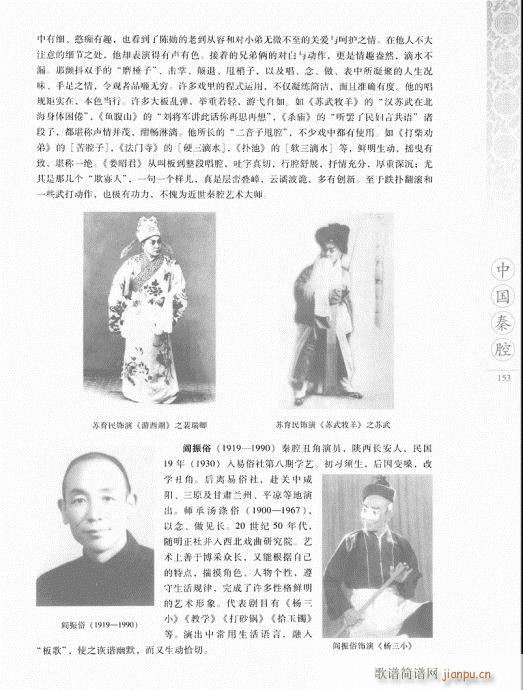 中有细、憨痴有趣，也看到了陈勋的老到从容和对小弟无微不至的关爱与呵护之情。在他人不大
注意的细节之处，他却表演得有声有色。接着的兄弟俩的对白与动作，更是情趣盎然，滴水不
漏。那颤抖双手的“磨捶子”、击掌、颠退、甩梢子，以及唱、念、做、表中所凝聚的人生况
味、手足之情，令观者品咂无穷。许多戏里的程式运用，不仅凝练简洁，而且准确有度。他的唱
规矩实在，本色当行。许多大板乱弹，举重若轻，游弋自如。如《苏武牧羊》的“汉苏武在北
海身体困倦”，《鱼腹山》的“刘将军讲此话你再思再想”，《杀庙》的“听罢了民妇言共语”诸
段子，都堪称声情并茂，酣畅淋漓。他所长的“二音子甩腔”，不少戏中都有使用。如《打柴劝
弟》的［苦腔子］，《法门寺》的［硬三滴水］，《扑池》的［软三滴水］等，鲜明生动，摇曳有
致，堪称一绝。《娄昭君》从叫板到整段唱腔，吐字真切，行腔舒展，抒情充分，厚重深沉；尤
其是那几个“欺寡人”，一句一个样儿，真是层峦叠嶂，云谲波诡，多有创新。至于跌扑翻滚和
一些武打动作，也极有功力，不愧为近世秦腔艺术大师。
苏育民饰演《游西湖》之裴瑞卿
苏育民饰演《苏武牧羊》之苏武
中国秦腔
153
阎振俗（1919—1990）秦腔丑角演员，陕西长安人，民国
19 年（1930）入易俗社第八期学艺。初习须生，后因变嗓，改
学丑角。后离易俗社，赴关中咸
阳、三原及甘肃兰州、平凉等地演
出。师承汤涤俗（1900—1967），
以念、做见长。20 世纪 50 年代，
随明正社并入西北戏曲研究院。艺
术上善于博采众长，又能根据自己
的特点，揣摸角色、人物个性，遵
守生活规律，完成了许多性格鲜明
的艺术形象。代表剧目有《杨三
小》《教学》《打砂锅》《拾玉镯》
等。演出中常用生活语言，融入
“板歌”，使之诙谐幽默，而又生动恰切。
阎振俗（1919—1990）
阎振俗饰演《杨三小》
歌谱简谱网
jianpu.cn